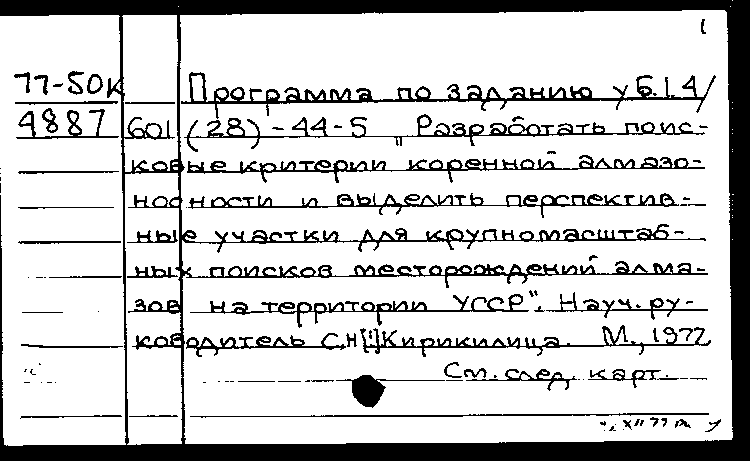 1
77-50к Программа по заданию уБ.1.4/
4887 601 (28)-44-5 „Разработать поис-
ковые критерии коренной алмазо-
носности и выделить перспектив-
ные участки для крупномасштаб-
ных поисков месторождений алма-
зов на территории УССР". Науч. ру-
ководитель С.Н[!]Кирикилица. М., 1977
См. след. карт.
XII 77